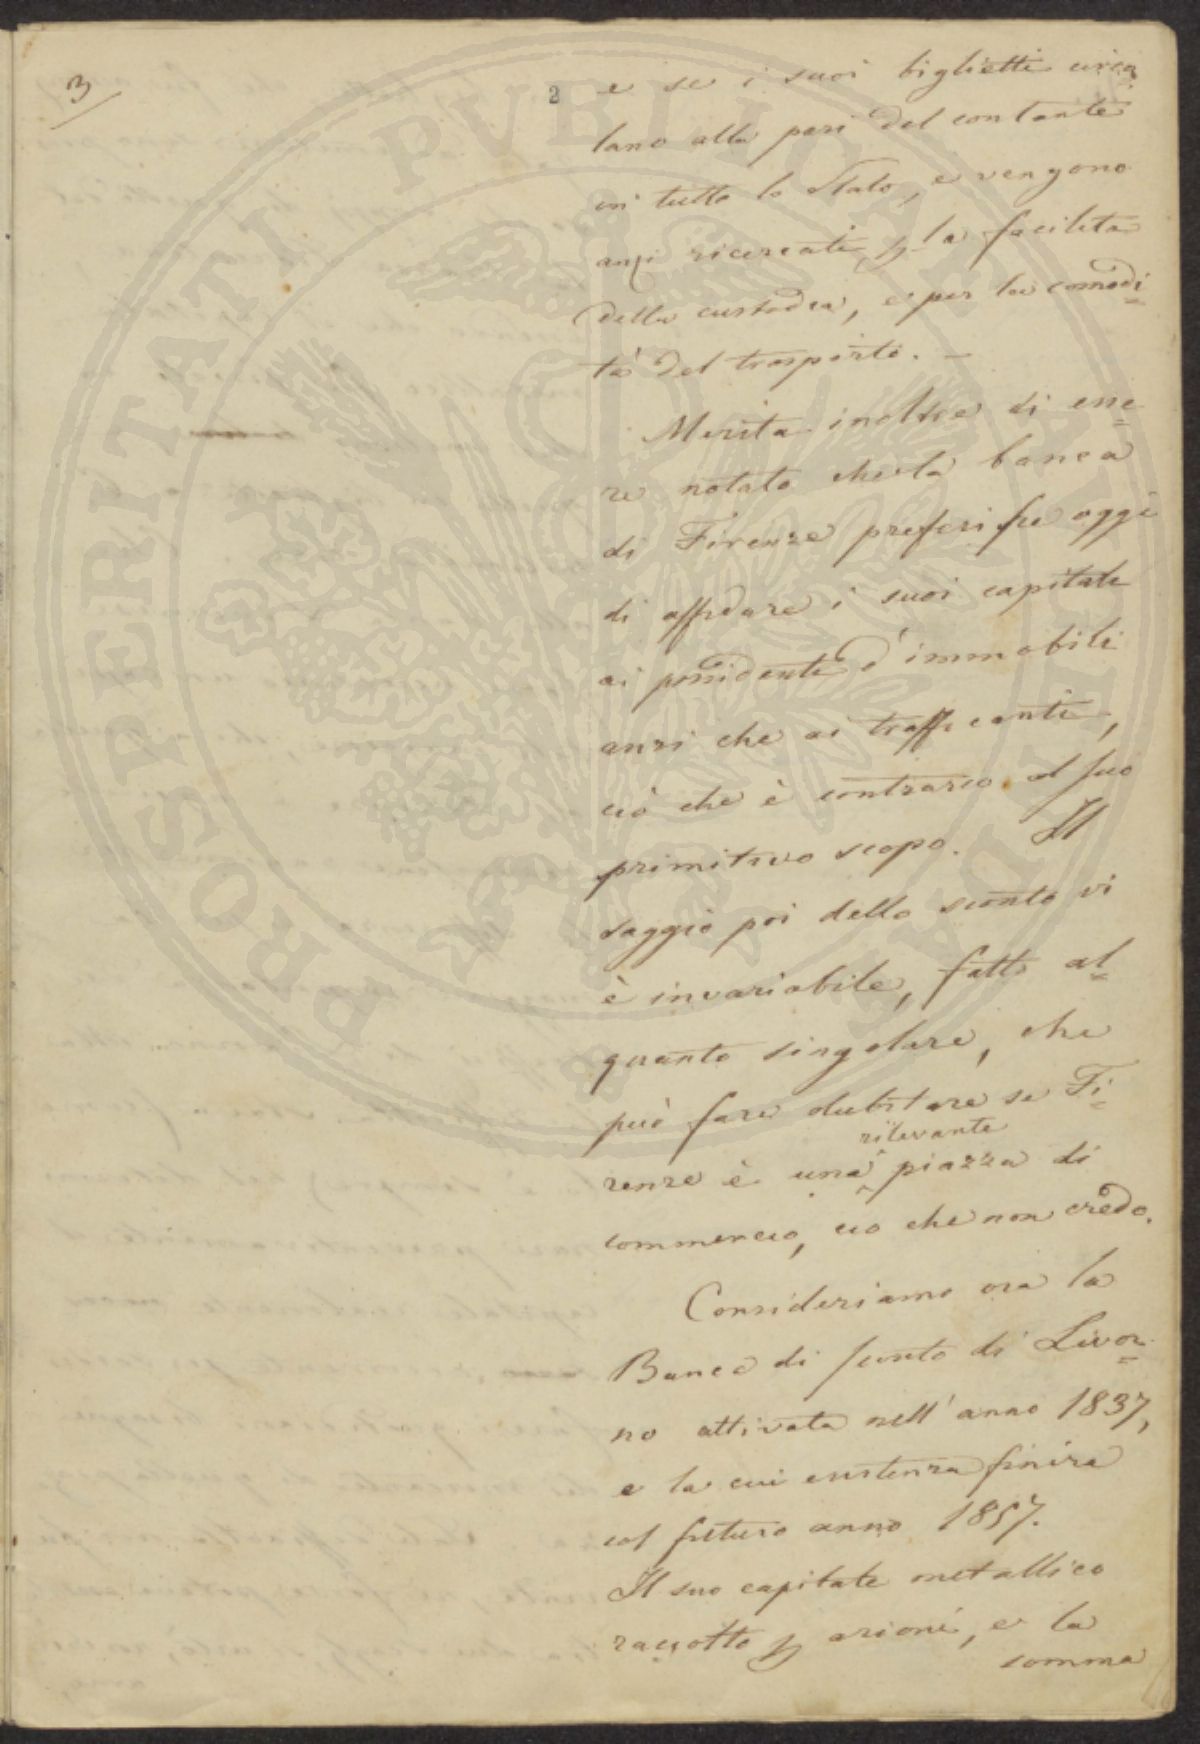 3
2
e se i suoi biglietti circo=
lano alla pari del contante
in tutto lo Stato, e vengono
anzi ricercati p la facilità
della custodia, e per la comodi=
tà del trasporto. -
Merita inoltre di esse=
re notato che la banca
di Firenze preferisce oggi
di affidare i suoi capitali
ai possidenti d'immobili
anzi che ai trafficanti,
ciò che è contrario al suo
primitivo scopo. Il
saggio poi dello sconto vi
è invariabile, fatto al=
quanto singolare, che
può fare dubitare se Fi=
renze è una rilevante piazza di
commercio, ciò che non credo.
Consideriamo ora la
Banca di sconto di Livor=
no attivata nell'anno 1837,
e la cui esistenza finirà
col futuro anno 1857.
Il suo capitale metallico
raccolto p azioni, e la
somma
PROSPERITATI PVBLICAE AVGENDAE